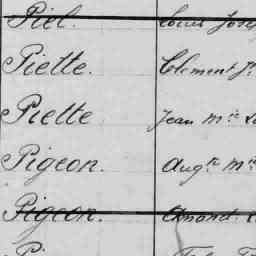 Piel. Louis Jose
Piette. Clement Jn
Piette Jean Mie
Pigeon. Augte Mie
Pigeon. Amand